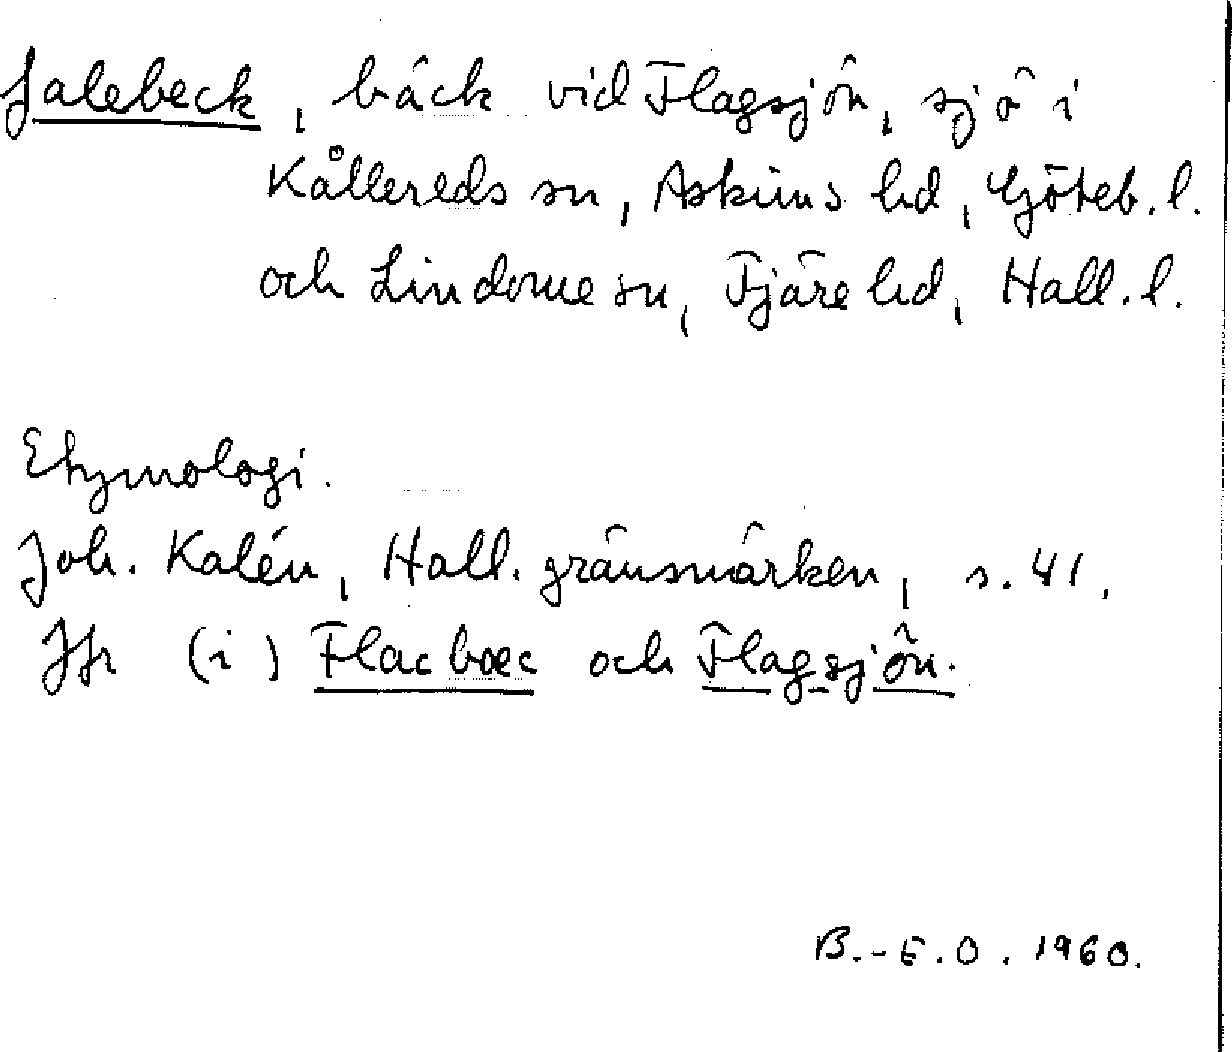 Jalebeck, bäck vid Flagsjön, sjö i
Kållereds sn, Askims hd, Göteb. l.
och Lindome sn, Fjäre hd, Hall. l.
Etymologi.
Joh. Kalén, Hall. gränsmärken, s. 41.
Jfr (i) Flacbæc och Flagsjön.
B.-E.O. 1960.